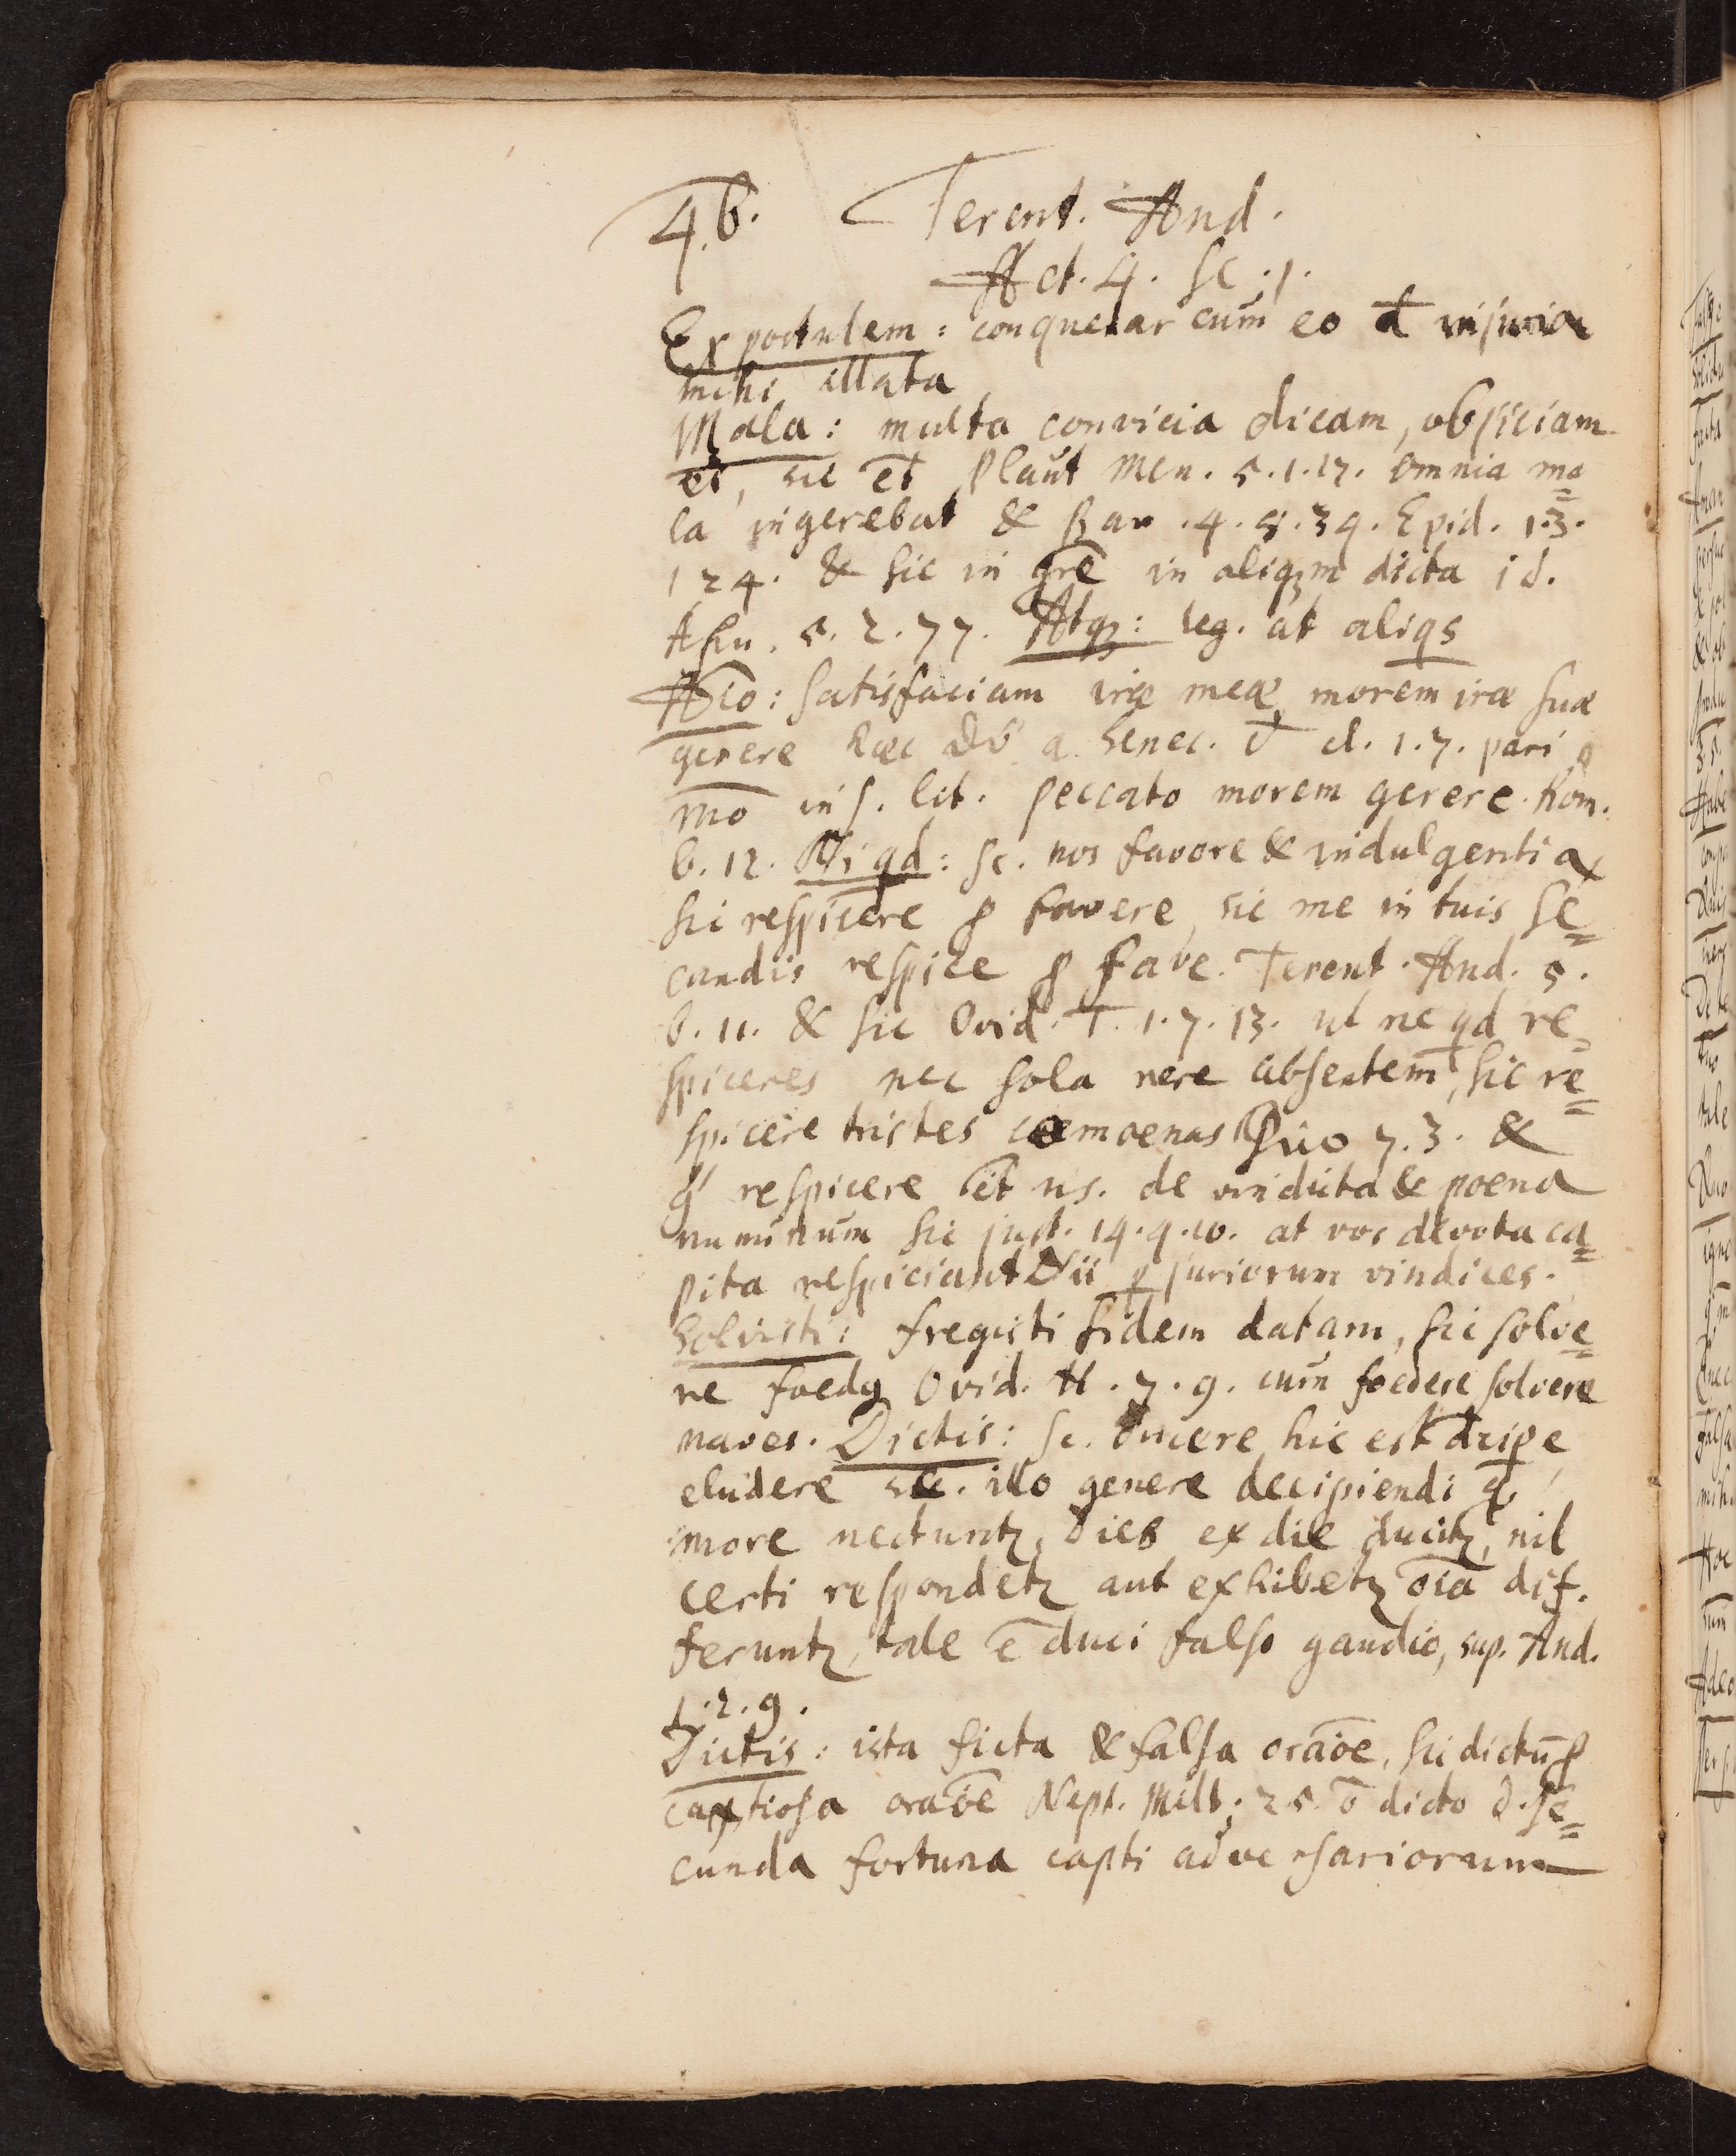 46. Terent. And.
Act. 4. Sc. 1.
Expostulem: conquerar cum eo đ injuria
mihi illata
Mala: multa convicia dicam, objiciam
ei, sic et Plaut Men. 5.1.17. omnia ma=
la ingerebat & Bac. 4.5.34. Epid. 1.3.
124. & sic in grē in aliqm dicta id.
Asin. 5.2.77. Atq: leg. at aliqs
Aĩo: satisfaciam iræ meæ, morem iræ suæ
gerere hæc a Senec. đ cl. 1.7. pari
mo in s. lit. peccato morem gerere. Rom.
6.12. Ni qd: sc. nos favore & indulgentia
sic respicere p favere, sic me in tuis se=
candis respice p fave. Terent. And. 5.
6.11. & sic Ovid. T. 1.7.13. ut ne qd re=
spiceres nec sola nere absentem, sic re=
spicere tristes camoenas 7.3. &
respicere ēt us. de vindicta & poena
numinum sic just. 14.4.10. at vos devota ca=
pita respiciant Dii pjuriorum vindices.
Solvisti: fregisti fidem datam, sic solve=
re foedq Ovid. H. 7.9. cum foedere solvere
naves. Dictis: sc. ducere hic est dcipe,
eludere sc. illo genere decipiendi q
more nectuntz, dies ex die ducitz, nil
certi respondetz aut exhibetz oīa dif.
feruntz, tale ē duci falso gaudio, sup. And.
1.2.9.
Dictis: ista ficta & falsa oraōe, sic dictū p
captiosa oraōe Nept. Milt: 25. ō dicto d. se=
cunda fortuna capti adversariorum